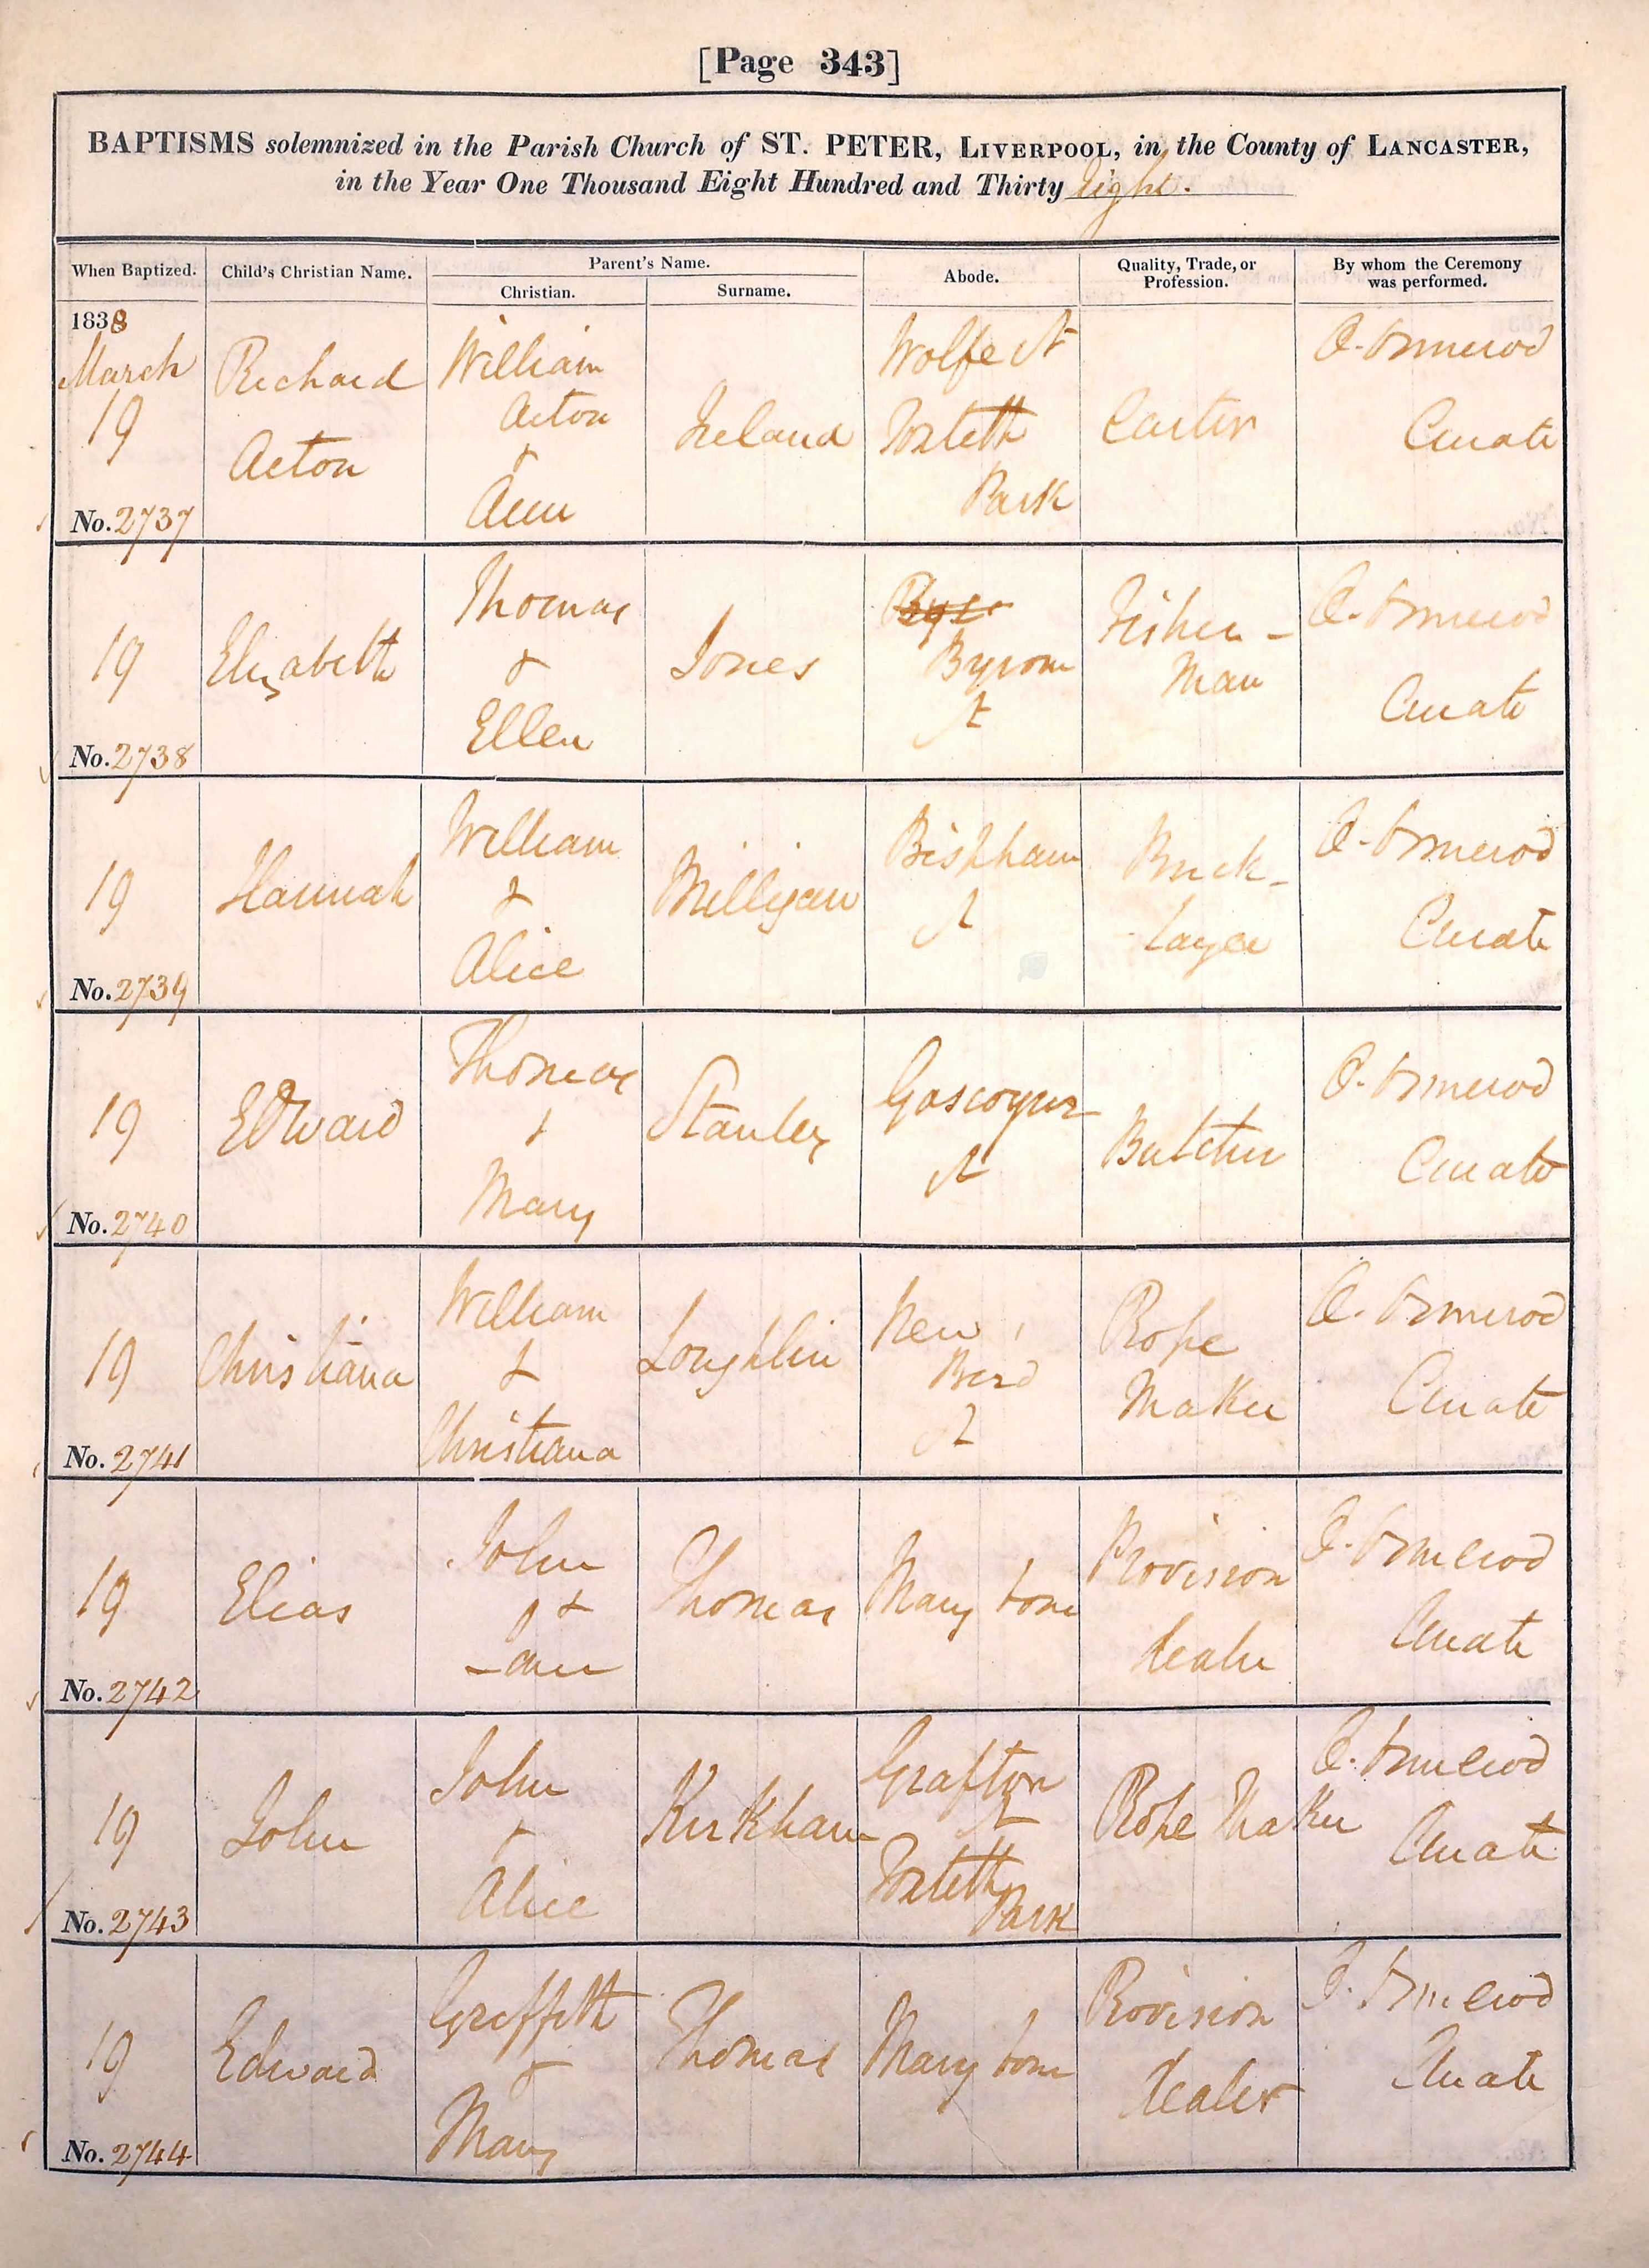 [Page 343]
BAPTISMS solemnized in the Parish Church of ST. PETER, LIVERPOOL, in the County of LANCASTER,
in the Year One Thousand Eight Hundred and Thirty Eight.
When Baptized. Child's Christian Name. Parent's Name. Abode. Quality, Trade, or Profession. By whom the Ceremony was performed.
Christian. Surname.
1838
March 19 Richard Acton William Acton & Ann Ireland Wolfe St Toxteth Park Carter Ormerod Curate
No. 2737
19 Elizabeth Thomas & Ellen Jones Byrom St Fisher-Man Ormerod Curate
No. 2738
19 Hannah William & Alice Milligan Bispham St Brick-layer Ormerod Curate
No. 2739
19 Edward Thomas & Mary Stanley Gascoyne St Butcher Ormerod Curate
No. 2740
19 Christiana William & Christiana Loughlin New Bird St Rope Maker Ormerod Curate
No. 2741
19 Elias John & Thomas Mary bone Provision dealer Ormerod Curate
No. 2742
19 John John & Alice Kirkham Grafton St Toxteth Park Rope Maker Ormerod Curate
No. 2743
19 Edward Griffith & Mary Thomas Mary bone Provision dealer Ormerod Curate
No. 2744